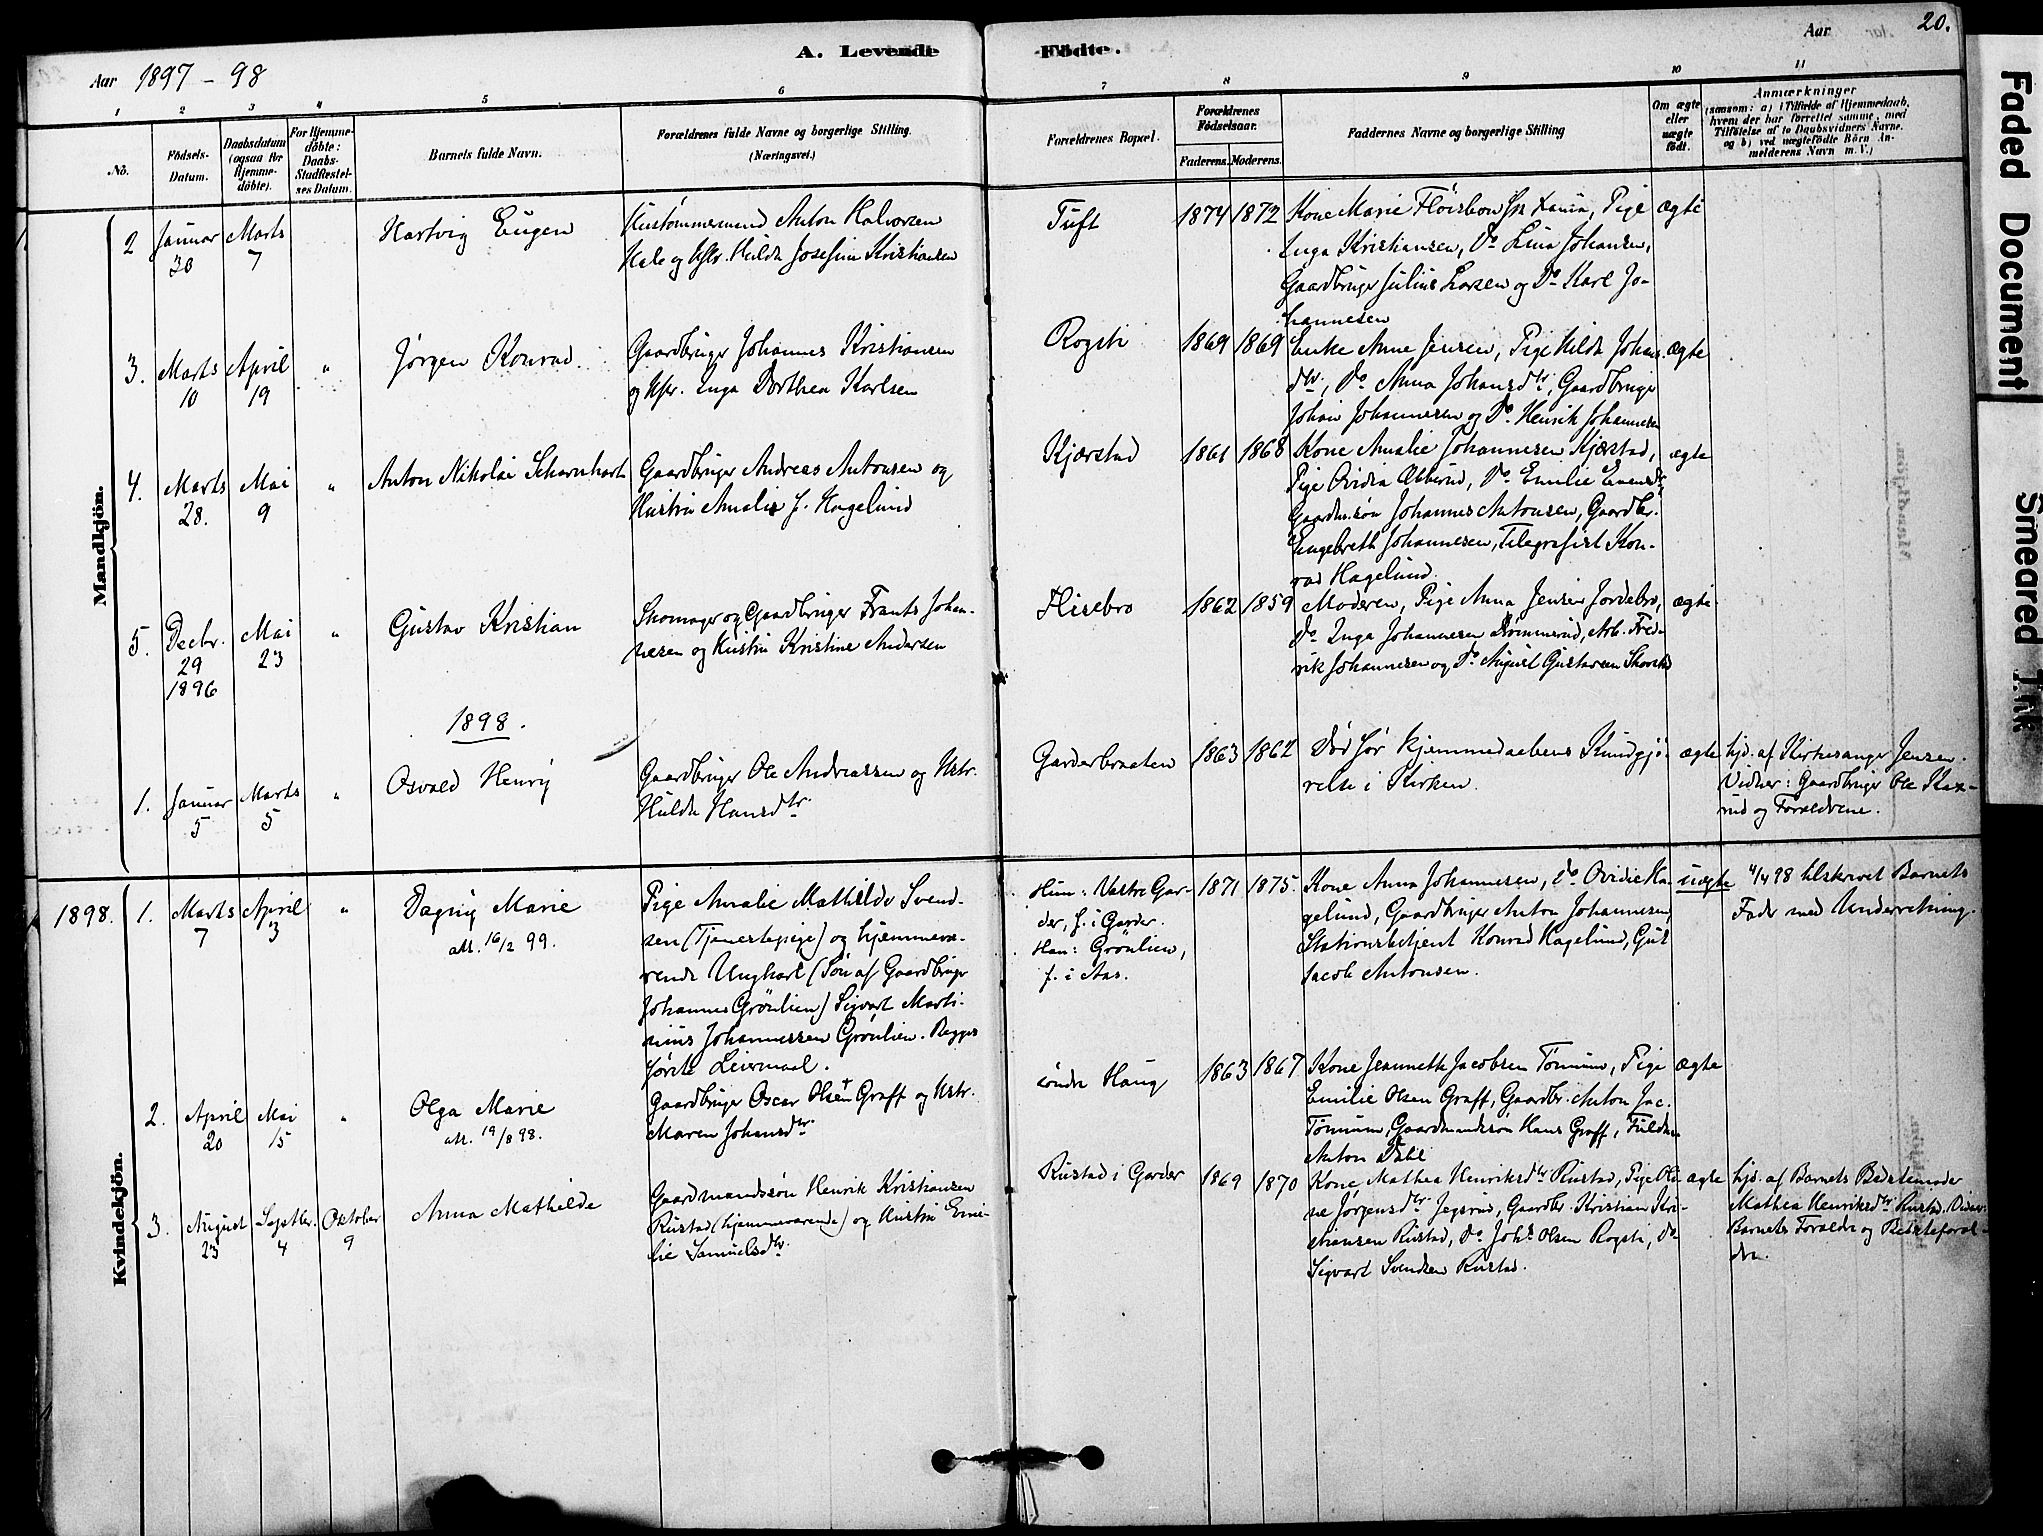 20.
A. Levende Födte.
Aar
Aar 1897 - 98
1 2 3 4 5 6 7 8 9 10 11
No.
Födsels-Datum.
Daabsdatum (ogsaa for Hjemmedöbte).
For Hjemmedöbte: Daabs-Stadfestelses Datum.
Barnets fulde Navn.
Forældrenes fulde Navne og borgerlige Stilling.
(Næringsvei.)
Forældrenes Bopæl.
Forældrenes Födselsaar.
Faderens. Moderens.
Faddernes Navne og borgerlige Stilling
Om ægte eller uægte födt.
Anmærkninger
(saasom: a) i Tilfælde af Hjemmedaab, hvem der har forrettet samme, med Tilföielse af to Daabsvidners Navne, og b) ved uægtefödte Börn Anmelderens Navn m. V.)
Mandkjön.
2 Januar 30
Marts 7
Hartvig Eugen
Hustømmermand Anton Halvorsen
Hale og Hstr. Hulda Josefine Kristiansen
Tuft
1874 1872
Kone Marie Fløisbon Pige ægte
Inga Kristiansen, Do Lina Johansen,
Gaardbruger Julius Larsen og Do Karl Jo-
hannesen
3. Marts 10
April 19
"
Jørgen Konrad
Gaardbruger Johannes Kristiansen
og Hstr. Inga Dorthea Karlsen
Rogsti
1869 1869
Enke Anne Jensen, Pige Hilda Johans- ægte
dtr, Do Anna Johansdtr, Gaardbruger
Johan Johannesen og Do Henrik Johannesen
4. Marts 28.
Mai 9
"
Anton Nikolai Scharnhort
Gaardbruger Andreas Antonsen og
Hustru Amalie J. Hagelund
Kjærstad
1861 1868
Kone Amalie Johannesen Kjærstad, ægte
Pige Ovidia Do Emilie
Gaardbr.søn Johannes Antonsen, Gaardbr.
Engebreth Johannesen, Telegrafist Kon-
rad Hagelund.
5. Decbr. 29 1896
Mai 23
"
Gustav Kristian
Skomager og Gaardbruger Frants Johan-
nesen og Hustru Kristine Andersen
Flisebro
1862 1859
Moderen, Pige Anna Jensen Jordebro, ægte
Do Inga Johannesen Arb. Fred-
rik Johannesen og Do August Gustavsen
1898.
1. Januar 5
Marts 5
"
Osvald Henry
Gaardbruger Ole Andreassen og Hstr.
Hulda Hansdtr.
Garderbraaten
1863 1862
Død før Hjemmedaabens Kundgjø- ægte
relse i Kirken.
hjd. af Kirkesanger Jensen.
Vidner: Gaardbruger Ole
rud og Forældrene.
Kvindekjön.
1898. 1. Marts 7
April 3
"
Dagny Marie
att. 16/2 99.
Pige Amalie Mathilde Svend-
sen (Tjenestepige) og hjemmevæ-
rende Ungkarl (Søn af Gaardbruger
Johannes Grönlien) Sigvart Marti-
nius Johannessen Grönlien. Begges
første Leiermaal.
Hun: Vestre Gar-
der, f. i Garder.
Han: Grönlien,
f. i Aas.
1871 1875.
Kone Anna Johannesen, Do Ovidie Ha- uægte
gelund, Gaardbruger Anton Johannesen,
Stationsbetjent Konrad Hagelund, Gut
Jacob Antonsen.
4/4 98 tilskrevet Barnets
Fader med Underretning.
2. April 20
Mai 15
"
Olga Marie
att. 19/8 98.
Gaardbruger Oscar Olsen Graff og Hstr.
Maren Johansdtr.
söndre Haug
1863 1867
Kone Jeannette Jacobsen Tømmm, Pige ægte
Emilie Olsen Graff, Gaardbr. Anton Jac.
Gaardmandssøn Hans Graff,
Anton Dahl
3. August 23
Septbr. 4
Oktober 9
Anna Mathilde
Gaardmandssøn Henrik Kristiansen
Rustad (hjemmeværende) og Hustru Emi-
lie Samuelsdtr.
Rustad i Garder
1869 1870
Kone Mathea Henriksdtr Rustad, Pige Oli- ægte
ne Jørgensdtr Jegsrud, Gaardbr. Kristian Kri-
stiansen Rustad, Do Johs Olsen Rogsti, Do
Sigvart Svendsen Rustad.
hjd. af Barnets Bedstemoder
Mathea Henriksdtr Rustad. Vidner:
Barnets Forældre og Bedsteforæl-
dre.
Faded Document
Smeared Ink